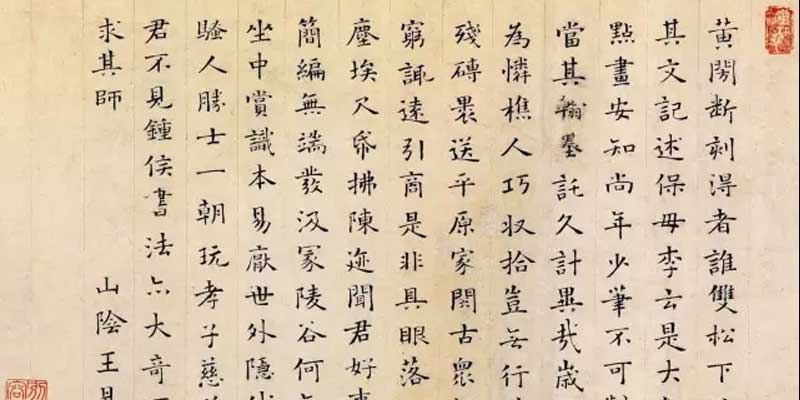 黄閍断刻淂者誰雙松下
其文記述保母李云是大
點畫安知尚年少筆不可
當其翰墨託久計異哉歳
為憐樵人巧収拾豈無行
殘磚褁送平原家閱古衆
窮諏遠引商是非具眼落
塵埃尺帋拂陳迹聞君好
簡編無端發汲冢陵谷何
坐中賞識本易厭世外隱
騷人勝士一朝玩孝子慈
君不見鍾侯書法亦大奇
求其師 山陰王